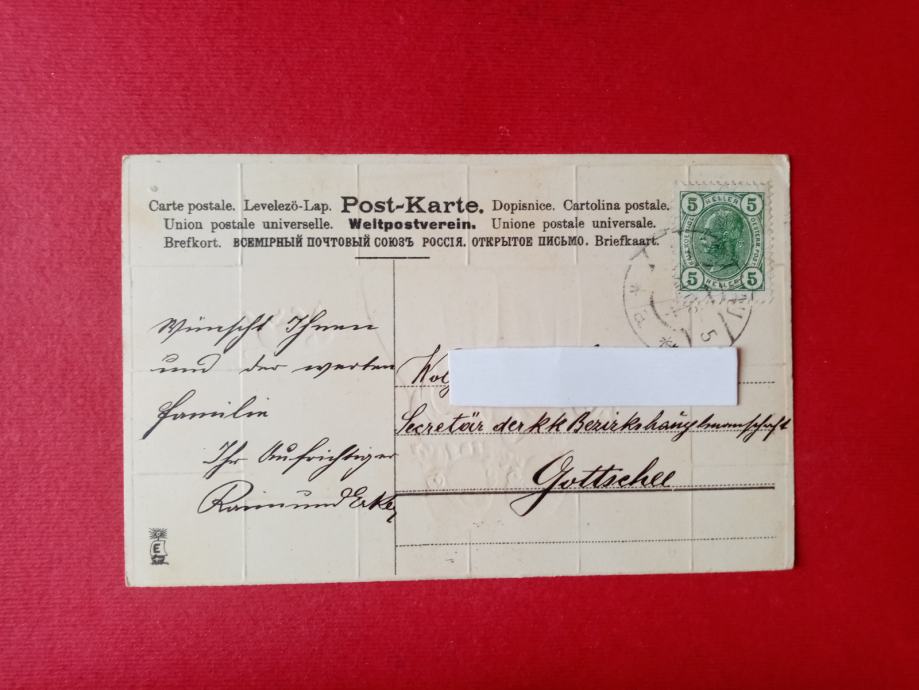 Carte postale. Levelező-Lap. Post-Karte. Dopisnice. Cartolina postale.
Union postale universelle. Weltpostverein. Unione postale universale.
Brefkort. ВСЕМІРНЫЙ ПОЧТОВЫЙ СОЮЗЪ РОССІЯ. ОТКРЫТОЕ ПИСЬМО. Briefkaart.
5 HELLER 5
5 HELLER 5
Wünscht Ihnen
und der werten
Familie
Ihr Aufrichtiger
Raimund
Secretär der kk Bezirkshauptmannschaft
Gottschee
E